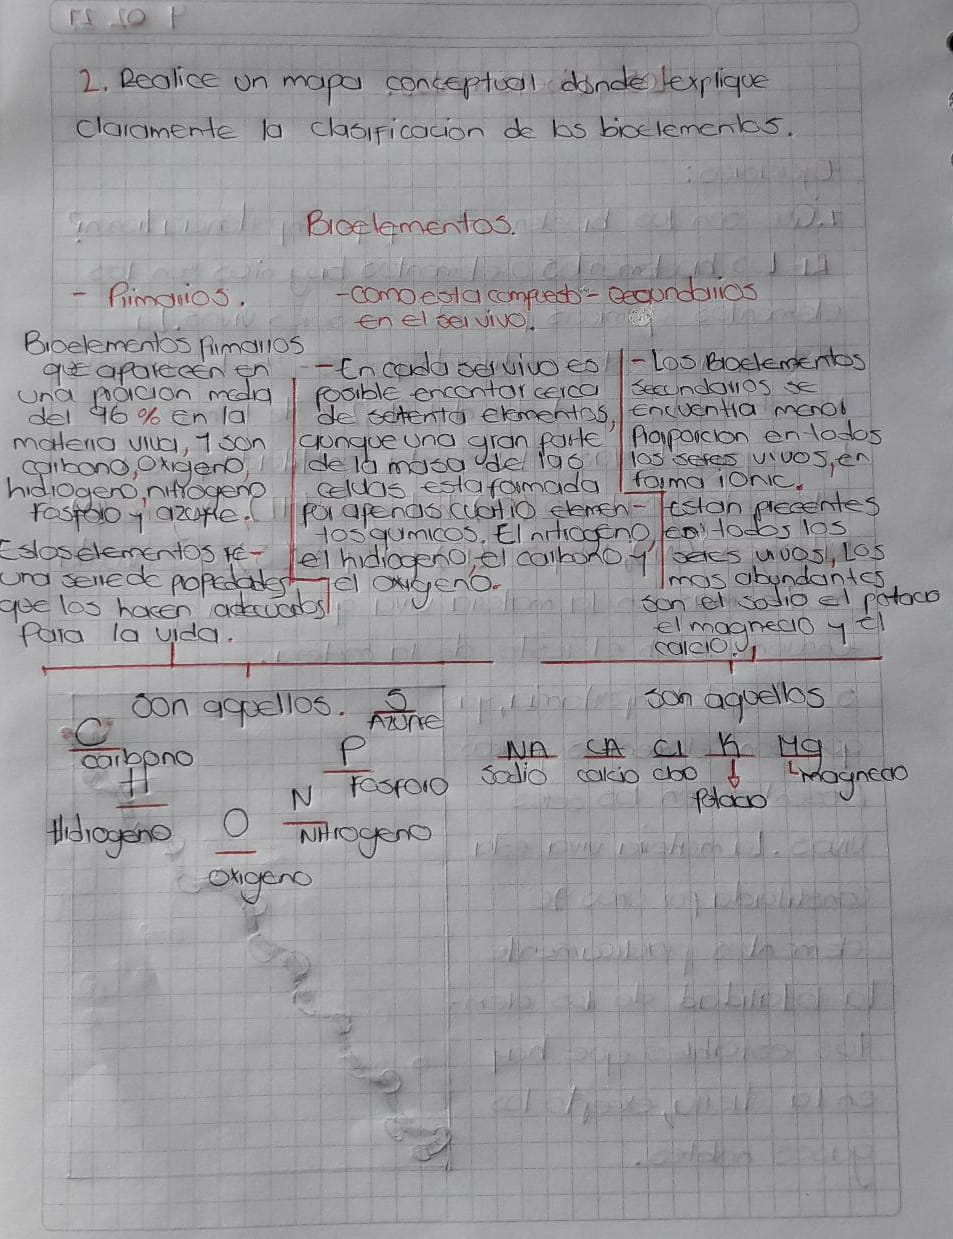 2. Realice un mapa conceptual donde explique
claramente la clasificación de los bioelementos.
Bioelementos.
- Primarios.
- como esta compuesto
en el ser vivo.
- secundarios
Bioelementos Primarios
que aparecen en
una porcion media
del 96% en la
materia viva, y son
carbono, oxigeno,
hidrogeno, nitrogeno
fosforo y azufre.
Estos elementos re-
una serie de popedades
que los hacen adecuados
Para la vida.
- En cada ser vivo es
posible encontar cerca
de setenta elementos,
aunque una gran parte
de la masa de las
celulas esta formada
por apenas cuatro elemen-
tos quimicos. El nitrogeno,
el hidrogeno, el carbono y
el oxigeno.
- Los Bioelementos
secundarios se
encuentra menor
Porporcion en todos
los seres vivos, en
forma ionic.
Estan precentes
en todos los
seres vivos, Los
mas abundantes
son el sodio el potacio
el magnecio y el
calcio.
Son aqpellos.
C
carbono
H
Hidrogeno
O
oxigeno
N
Nitrogeno
P
Fosforo
S
Azufre
son aquellos
NA
Sodio
CA
calcio
Cl
cloro
K
Potacio
Mg
magnecio